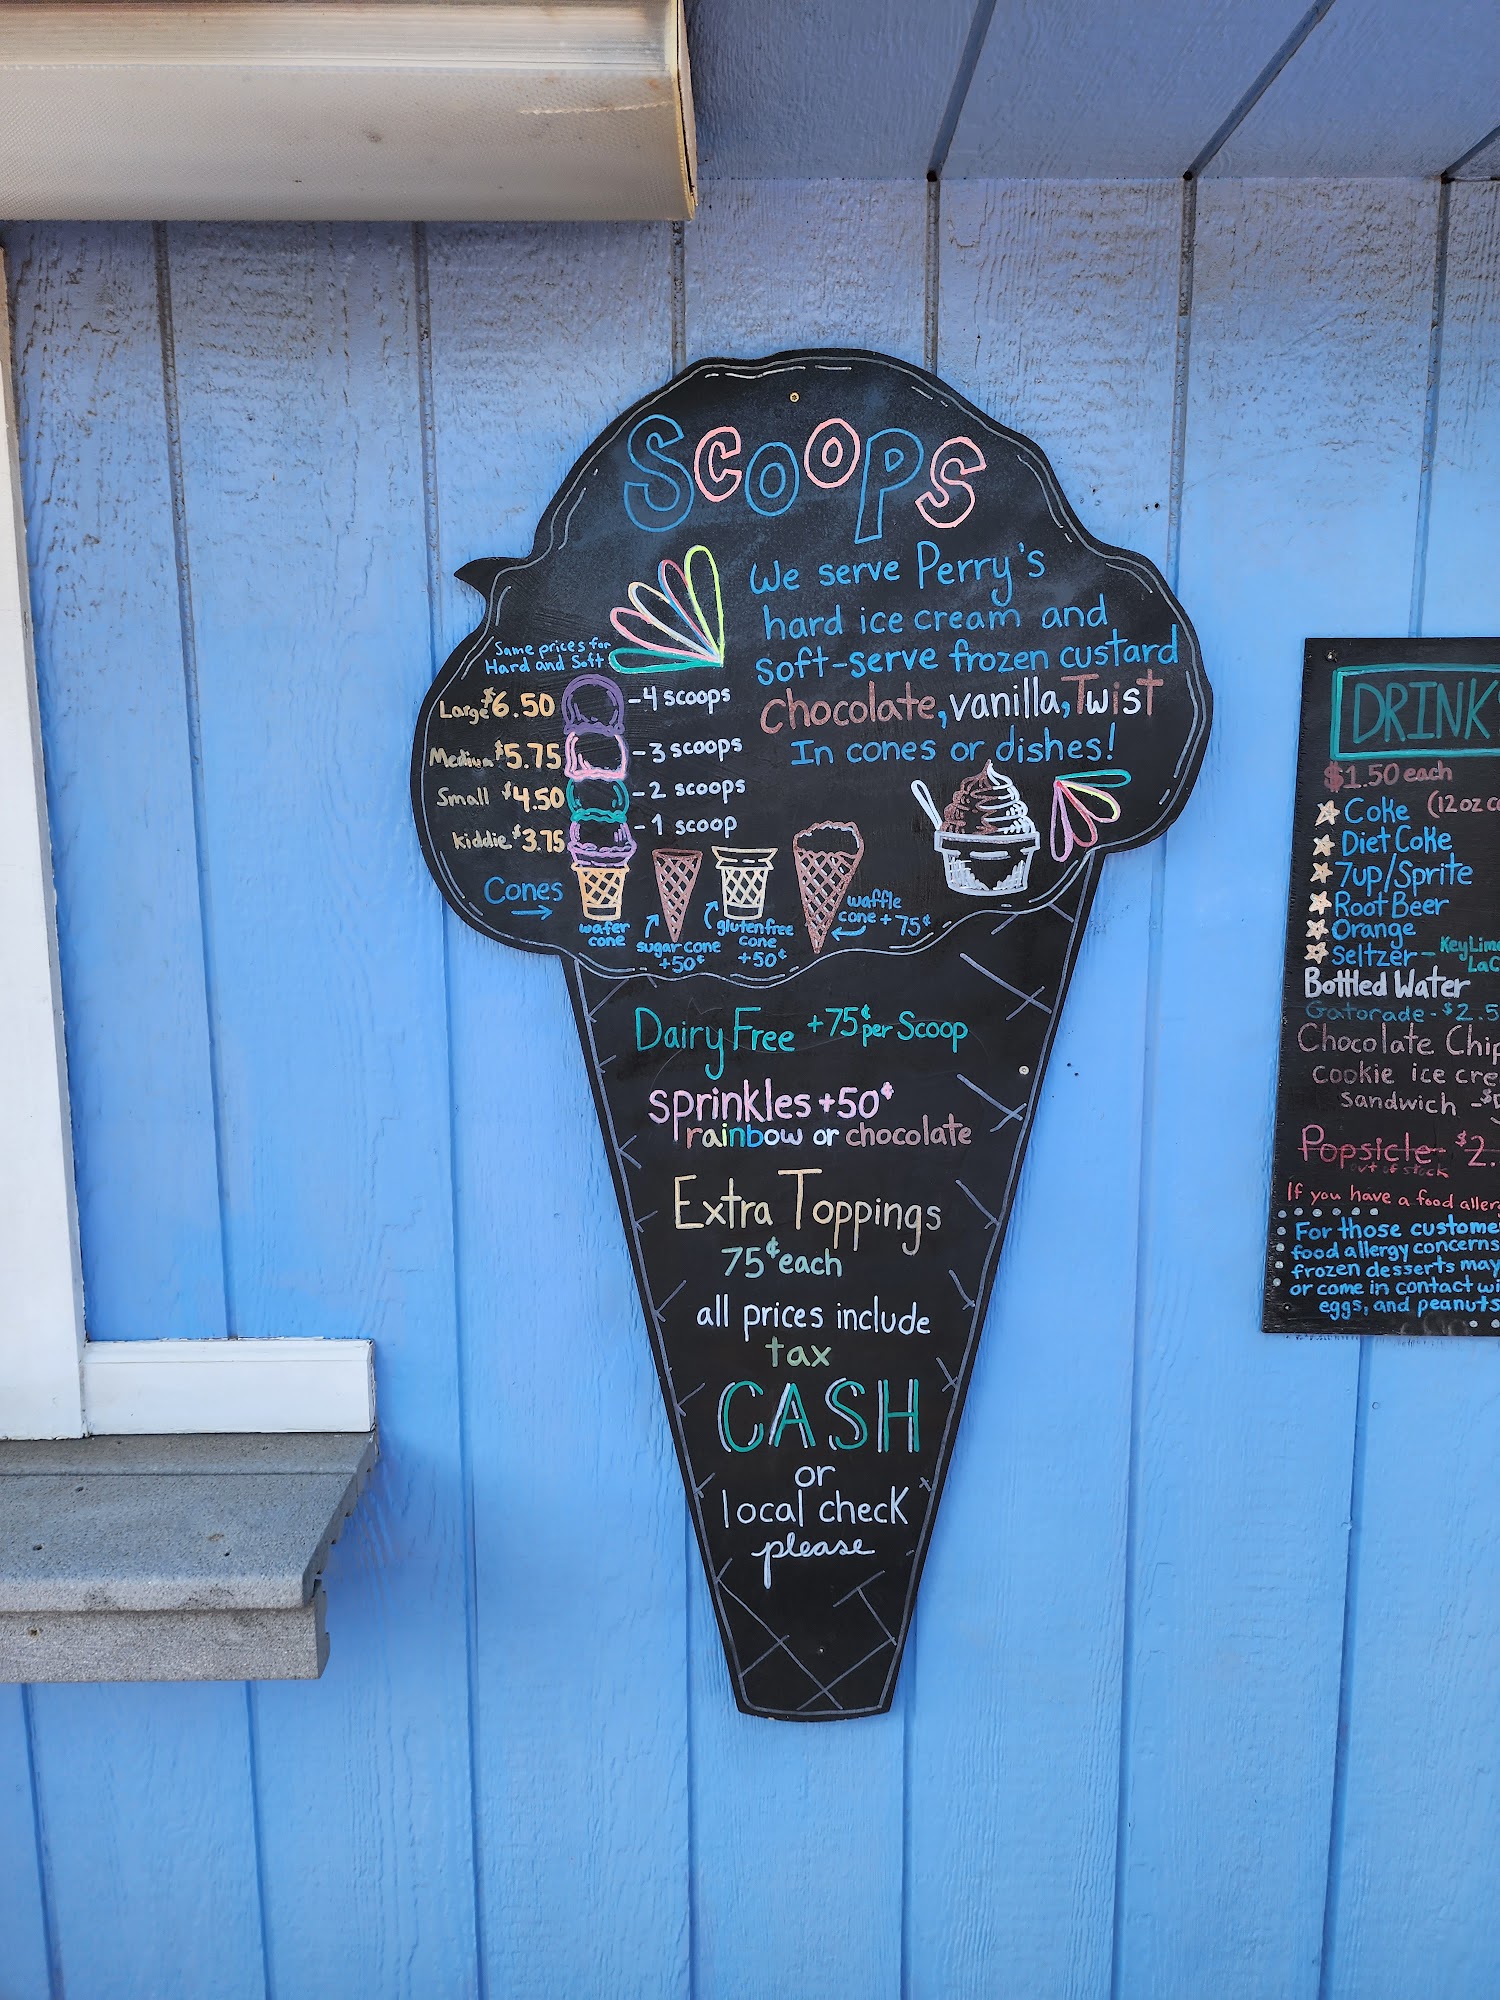 Scoops
We serve Perry's
hard ice cream and
soft-serve frozen custard
chocolate, vanilla, Twist
In cones or dishes!
Same prices for
Hard and Soft
Large $6.50 -4 scoops
Medium $5.75 -3 scoops
Small $4.50 -2 scoops
Kiddie $3.75 -1 scoop
Cones
wafer
cone
sugar cone
+50¢
glutenfree
cone
+50¢
waffle
cone +75¢
Dairy Free +75¢ per Scoop
sprinkles +50¢
rainbow or chocolate
Extra Toppings
75¢ each
all prices include
tax
CASH
or
local check
please
DRINK
$1.50 each
Coke (12oz
Diet Coke
7up/Sprite
Root Beer
Orange
Seltzer - Key Lime
Bottled Water
Gatorade - $2.5
Chocolate Chip
cookie ice cre
sandwich -$
Popsicle $2.
out of stock
If you have a food aller
For those custome
food allergy concerns
frozen desserts may
or come in contact wi
eggs, and peanuts